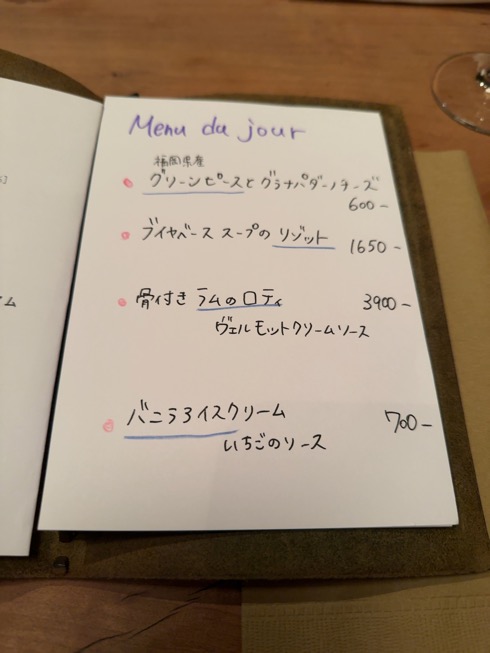 Menu da jour
福岡県産
グリーンピースとグラナパダーノチーズ
600-
ブイヤベース スープの リゾット 1650-
骨付き ラムのロティ 3900-
ヴェルモットクリームソース
バニラアイスクリーム 700-
いちごのソース